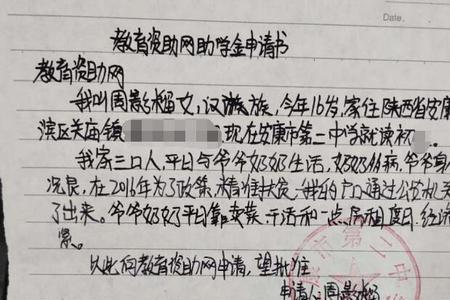 Date.
教育资助网助学金申请书
教育资助网
我叫周影 文，汉族，今年16岁，家住陕西省安康
滨区关庙镇 现在安康市第二中学就读初 。
我家三口人，平日与爷爷奶奶生活，奶奶 病，爷爷身
况良，在2016年为了政策精准扶贫，我的户口通过公安机关
了出来。爷爷奶奶平日靠卖菜、干活和一点房租度日，经济
紧。
以此向教育资助网申请，望批准
申请人：周影
市第二中